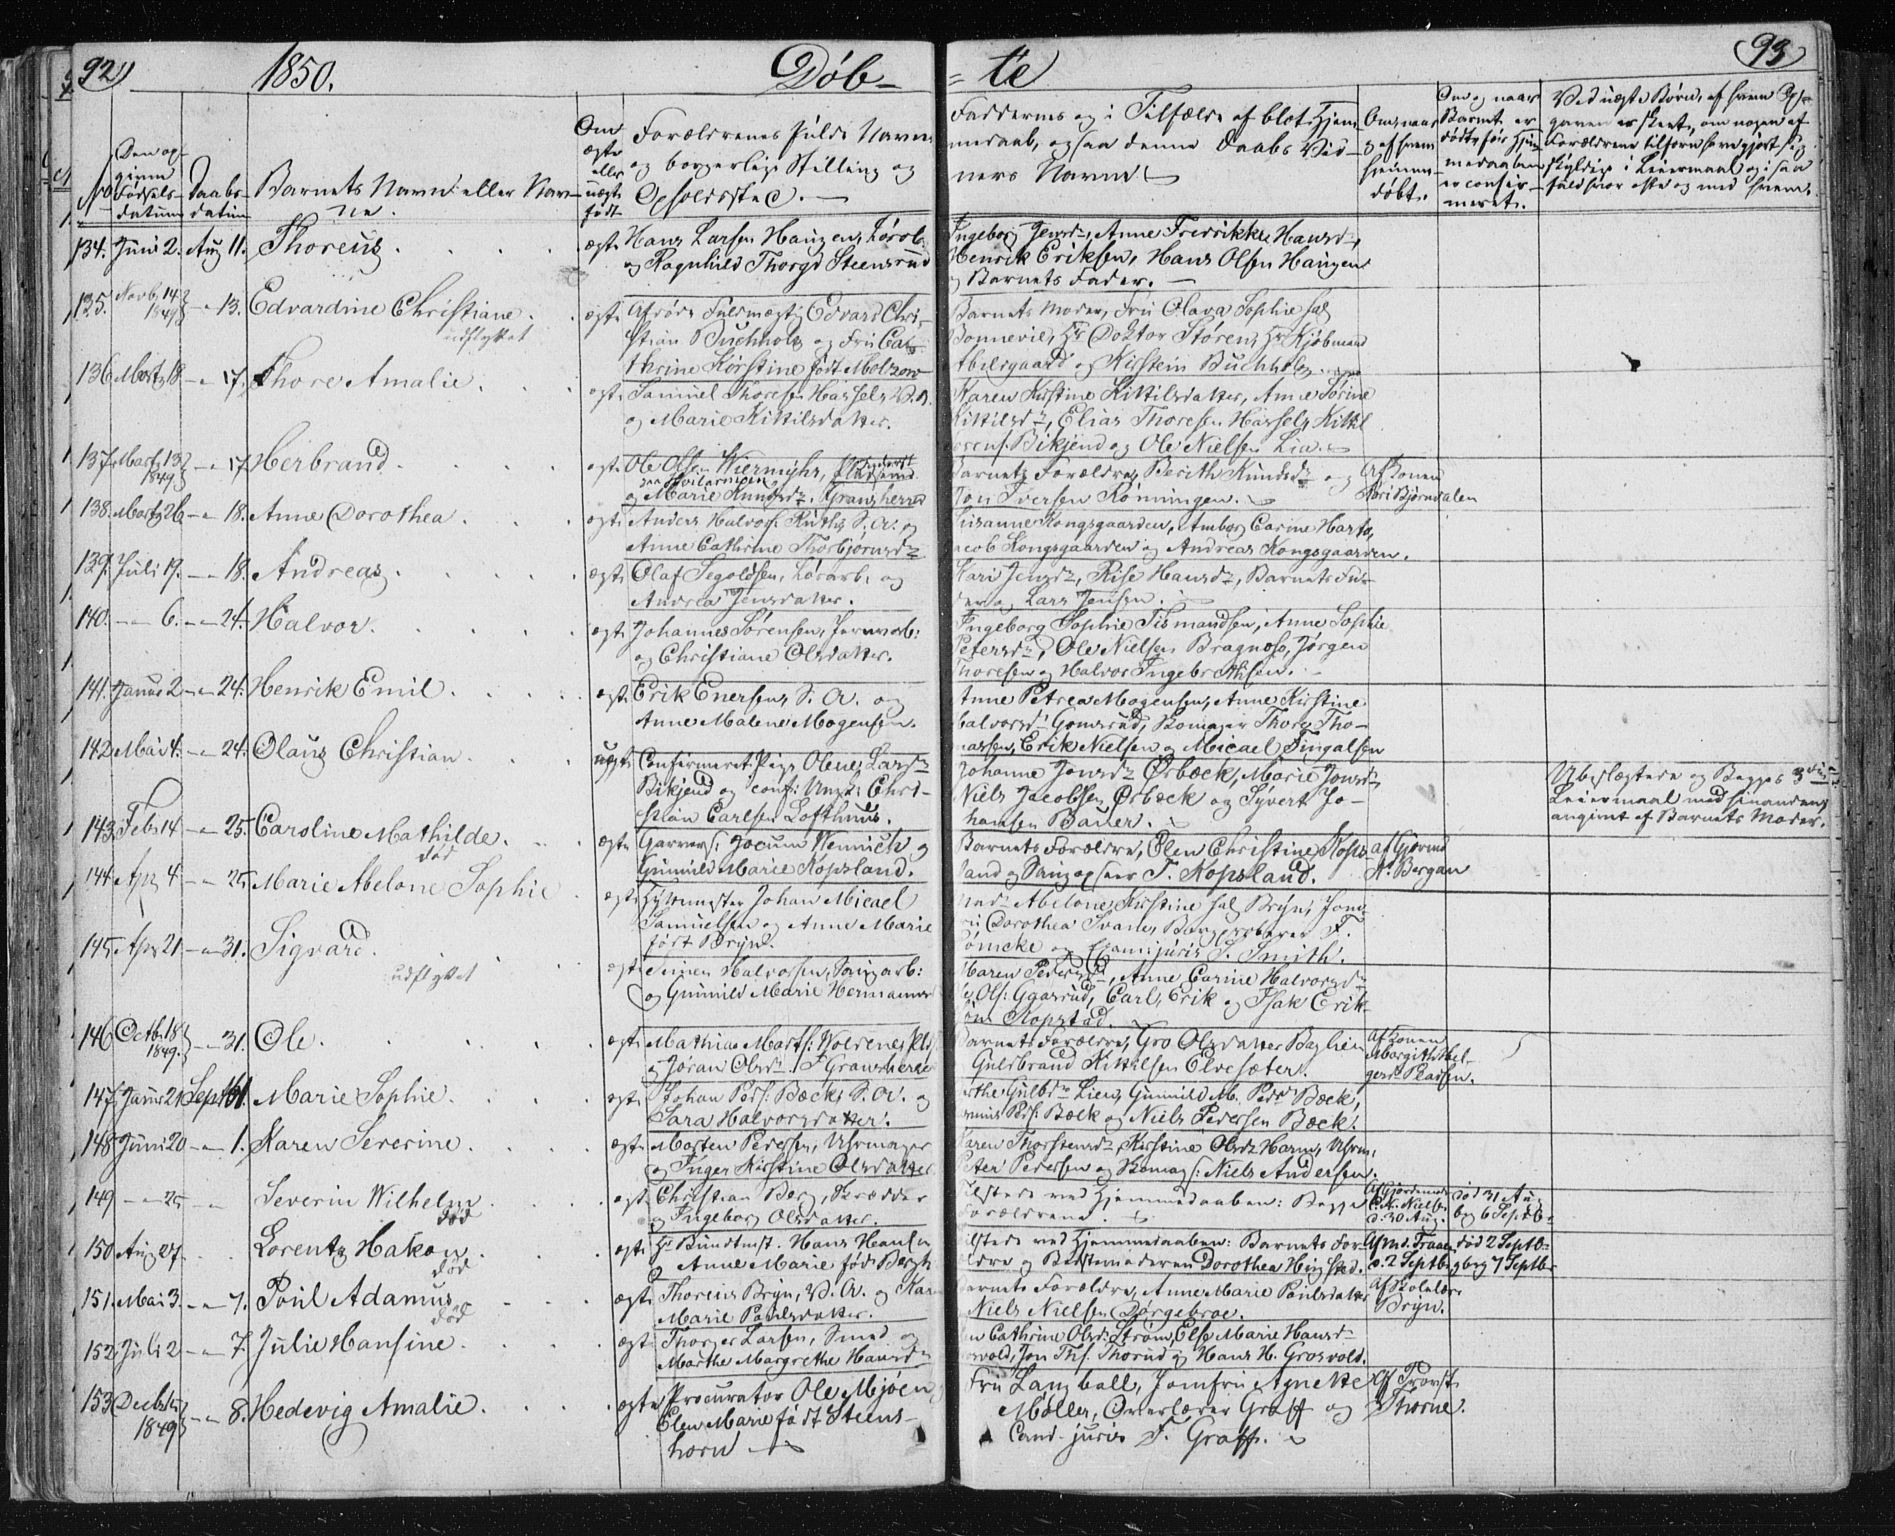 92)
1850.
Døb-
= te
93
No
Den op-
given
Fødsels-
datum
Daabs-
datum
Barnets Navn eller Nav-
ne.
Om
ægte
eller
uægte
født
Forældrenes fulde Navn
og borgerlige Stilling og
Opholdssted.
Faddernes og i Tilfælde af blot Hjem-
medaab, ogsaa denne Daabs Vid-
ners Navne
Om, naar
og af hvem
hjemme-
døbt.
Om og naar
Barnet er
dødt, før Hjem-
medaaben
er confir-
meret.
Ved uægte Børn, af hvem Op-
gaven er skeet, om nogen af
Forældrene tilforn have gjort sig
skyldig i Leiermaal og i saa
fald hvor ofte og med hvem.
134. Juni 2. Aug 11. Thorens. ægte Hans Larsen Haugen, Lørarb.
og Ragnhild Thorgd Steensrud
Ingeborg Jensd., Anne Fredrikke Hansd.,
Henrik Eriksen, Hans Olsen Haugen
og Barnets Fader.
135. Novb 14 1849 - " 13. Edvardine Christiane. ægte Edvard Chri-
udflyttet
stian Buchholz og Fru Cat-
hrine Kirstine født Moltzow
Barnets Moder, Fru Olava Sophie sal
Bonnevie, Hr Doktor Støren, Hr Kjøbmand
Abildgaard og Kirstein Buchholz
136 Marts 18 - " 17. Thore Amalie. ægte Samuel Thoresen Hassel, V. A.
og Marie Kittilsdatter.
Karen Kirstine Kittilsdatter, Anne Sørine
Kittilsd., Elias Thoresen Hassel, Kittil
Bikjend og Ole Nielsen Lia.
137. Marts 13 1849 - " 17. Herbrand. ægte Ole Olsen Wiermyhr,
og Marie Knudsd. Gransherred
Barnets Forældre, Berith Knudsd. og
Jon Iversen Rønningen.
Af Konen
Kari Bjørndalen
138. Marts 26 - " 18. Anne Dorothea. ægte Anders Halvors. Ruths S. A. og
Anne Cathrine Thorbjørnsd.
Susanne Kongsgaarden, Ambor Carine Hartz,
Jacob Kongsgaarden og Andreas Kongsgaarden.
139. Juli 19. - " 18. Andreas. ægte Olaf Segoldsen, Lørarb. og
Andrea Jensdatter.
Kari Jensd., Rise Hansd., Barnets Fa-
der og Lars Jensen.
140. - " 6. - " 24. Halvor. ægte Johannes Sørensen, Jernarb:
og Christiane Olsdatter.
Ingeborg Sophie Tidmandsen, Anne Sophie
Petersd., Ole Nielsen Bragnæs, Jørgen
Thoresen og Halvor Ingebrethsen.
141. Januar 2 - " 24. Henrik Emil. ægte Erik Enersen, S. A. og
Anne Malene Mogensen.
Anne Petrea Mogensen, Anne Kirstine
Halvorsd. Gomsrud, Skomager Thore Tho-
massen, Erik Nielsen og Micael Fingalsen
142 Mai 4. - " 24. Olaus Christian. uægte Confirmeret Pige Olene Larsd.
Bikjend og conf: Ungk: Chri-
stian Carlsen Lofthuus.
Johanne Jensd. Ørbæck, Marie Jensd.,
Niels Jacobsen Ørbæck og Syvert Jo-
hansen Bader.
Ubeslægtede og Begges 3die
Leiermaal med hinanden,
angivet af Barnets Moder.
143. Febr 14 - " 25. Caroline Mathilde. ægte Garvers. Jocum Wennich og
død
Gunnild Marie Kopsland.
Barnets Forældre, Olen Christine Kops-
land og Tangopseer T. Kopsland.
af Gjorm
A. Bergan
144. Apr. 4 - " 25. Marie Abelone Sophie. ægte Hyttemester Johan Micael
Samuelsen og Anne Marie
født Bryn.
Abelone Kirstine sal Bryn, Jom-
fru Dorothea Svane, Bergprobeerer F.
og Exam: juris S. Smith.
145. Apr 21 - " 31. Sigvard. ægte Simen Halvorsen, Saugarb:
udflyttet
og Gunnild Marie Hermansd.
Maren Pedersd., Anne Carine Halvorsd.
Ols: Ggasrud, Carl, Erik og Isak Erik-
sen Kopstad.
146 Octb. 18 1849. - " 31. Ole. ægte Mathias Marts:
og Jøran Olsd. i Gransherred
Barnets Forældre, Gro Olsdatter Baglien
Gulbrand Kittelsen Elvesæter.
Af Konen
Margith Hel-
gesd. Plassen.
147. Januar 21 Septb 1. Marie Sophie. ægte Johan Peds: Bæck, S. A. og
Sara Halvorsdatter.
Gulbd. Lien, Gunnild M. Ped. Bæck,
Peds: Bæck og Niels Pedersen Bæck.
148 Juni 20 - " 1. Karen Severine. ægte Morten Pedersen, Uhrmager
og Inger Kirstine Olsdatter.
Karen Thorstensd., Kirstine Olsd. Harm, Uhrm,
Peter Pedersen og Skomag: Niels Andersen.
149 - " 25 - " Severin Wilhelm. ægte Christian Berg, Skrædder
død
og Ingeborg Olsdatter.
Tilstede ved Hjemmedaaben: Begge
Forældrene.
Af Gjordemod.
C. N. Nielsen
d: 30 Aug.
død 31 Aug.
beg 6 Septb.
150 Aug 27. Lorentz Hakon. ægte Hr Bundtmst. Hans Hansen
død
og Anne Marie født Bergh
Tilstede ved Hjemmedaaben: Barnets For-
ældre og Bedstemoderen Dorothea Hingstad.
Af Md. Traaen
d. 2 Septb.
død 2 Septb:
begr. 7 Septbr
151. Mai 3. - " 7. Poul Adamus. ægte Thorens Bryn, V. A. og Karen
død
Marie Poulsdatter.
Barnets Forældre, Anne Marie Poulsdatter
Niels Nielsen Dørgebroe.
Af Skolelær.
Bryn.
152 Juli 2 - " 7. Julie Hansine. ægte Thorger Larsen, Smed og
Marthe Margrethe Hansd.
Cathrine Olsd: Strøm, Else Marie Hansd.
Grosvold, Jon Ths. Thorud og Hans H. Grosvold.
153 Decb. 1849 - " 8. Hedevig Amalie. ægte Procurator Ole Mjøen
Elen Marie født Steens-
horn
Fru Langball, Jomfru Agnette
Møller, Overlærer Graff og
Cand. juris F. Graff.
Af Provst
Thorne.